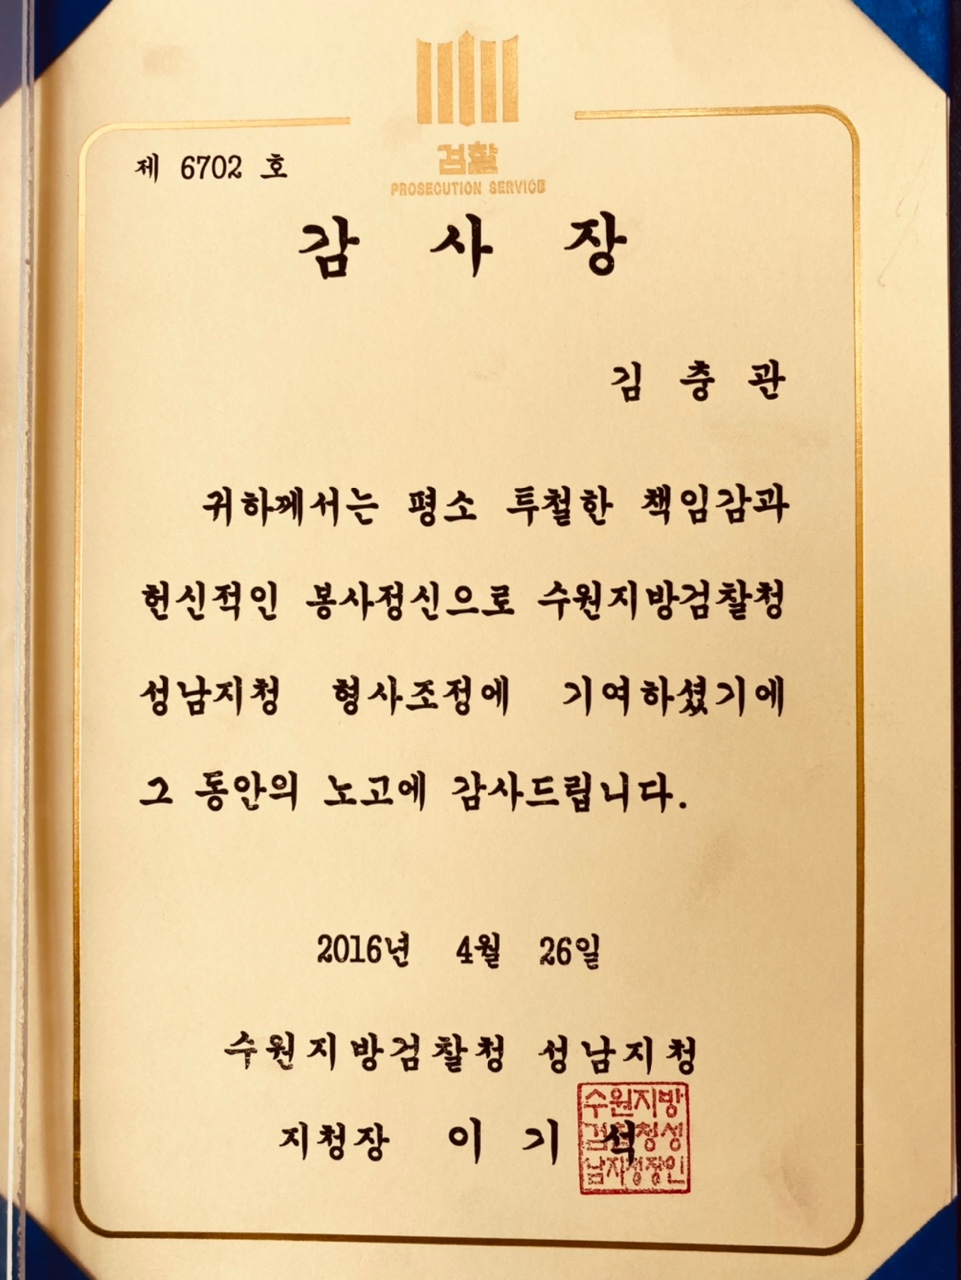 검찰
PROSECUTION SERVICE
제 6702 호
감 사 장
김 충 관
귀하께서는 평소 투철한 책임감과
헌신적인 봉사정신으로 수원지방검찰청
성남지청 형사조정에 기여하셨기에
그 동안의 노고에 감사드립니다.
2016년 4월 26일
수원지방검찰청 성남지청
지청장 이 기 석
수원지방
검찰청성
남지청장인